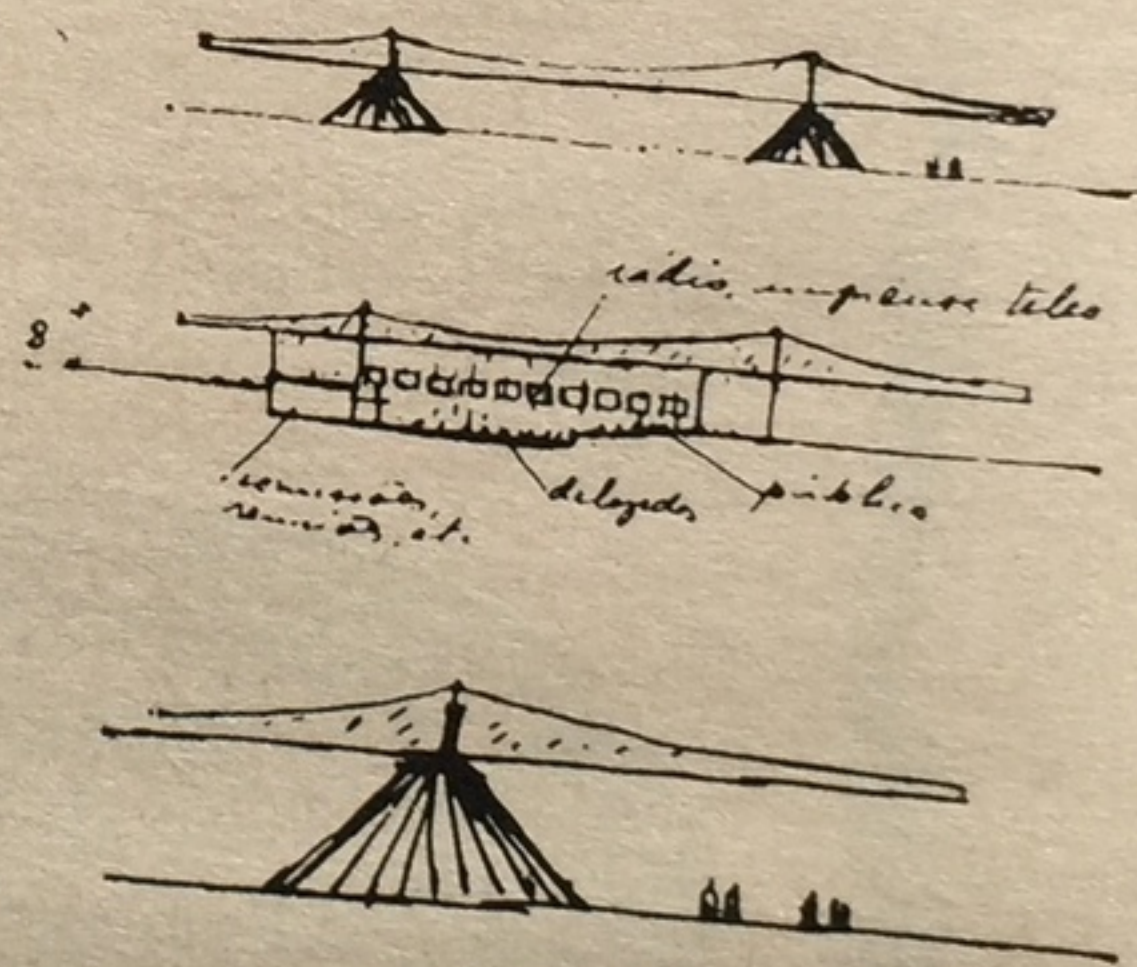 8
rádio, imprensa teles
comissões,
reuniões, et.
delegados
público